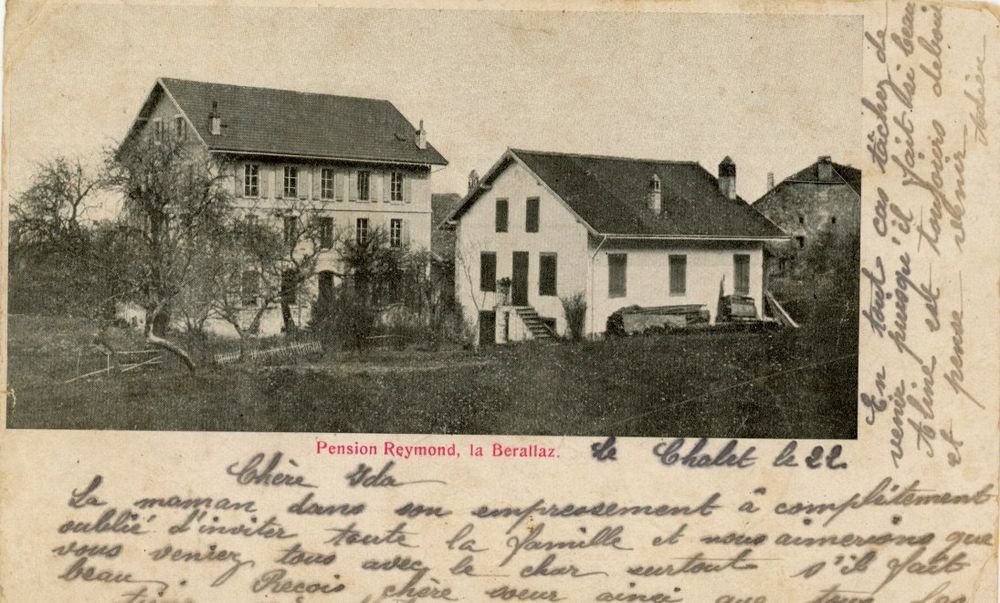 Pension Reymond, la Berallaz.
Le Chalet le 22
Chère Ida
La maman dans son empressement à complètement
oublié d'inviter toute la famille et nous aimerions que
vous veniez tous avec le char surtout s'il fait
beau. Reçois chère sœur ainsi que tous les
En tout cas tâchez de
venir puisqu'il fait si beau
Aline est toujours debout
et pense venir